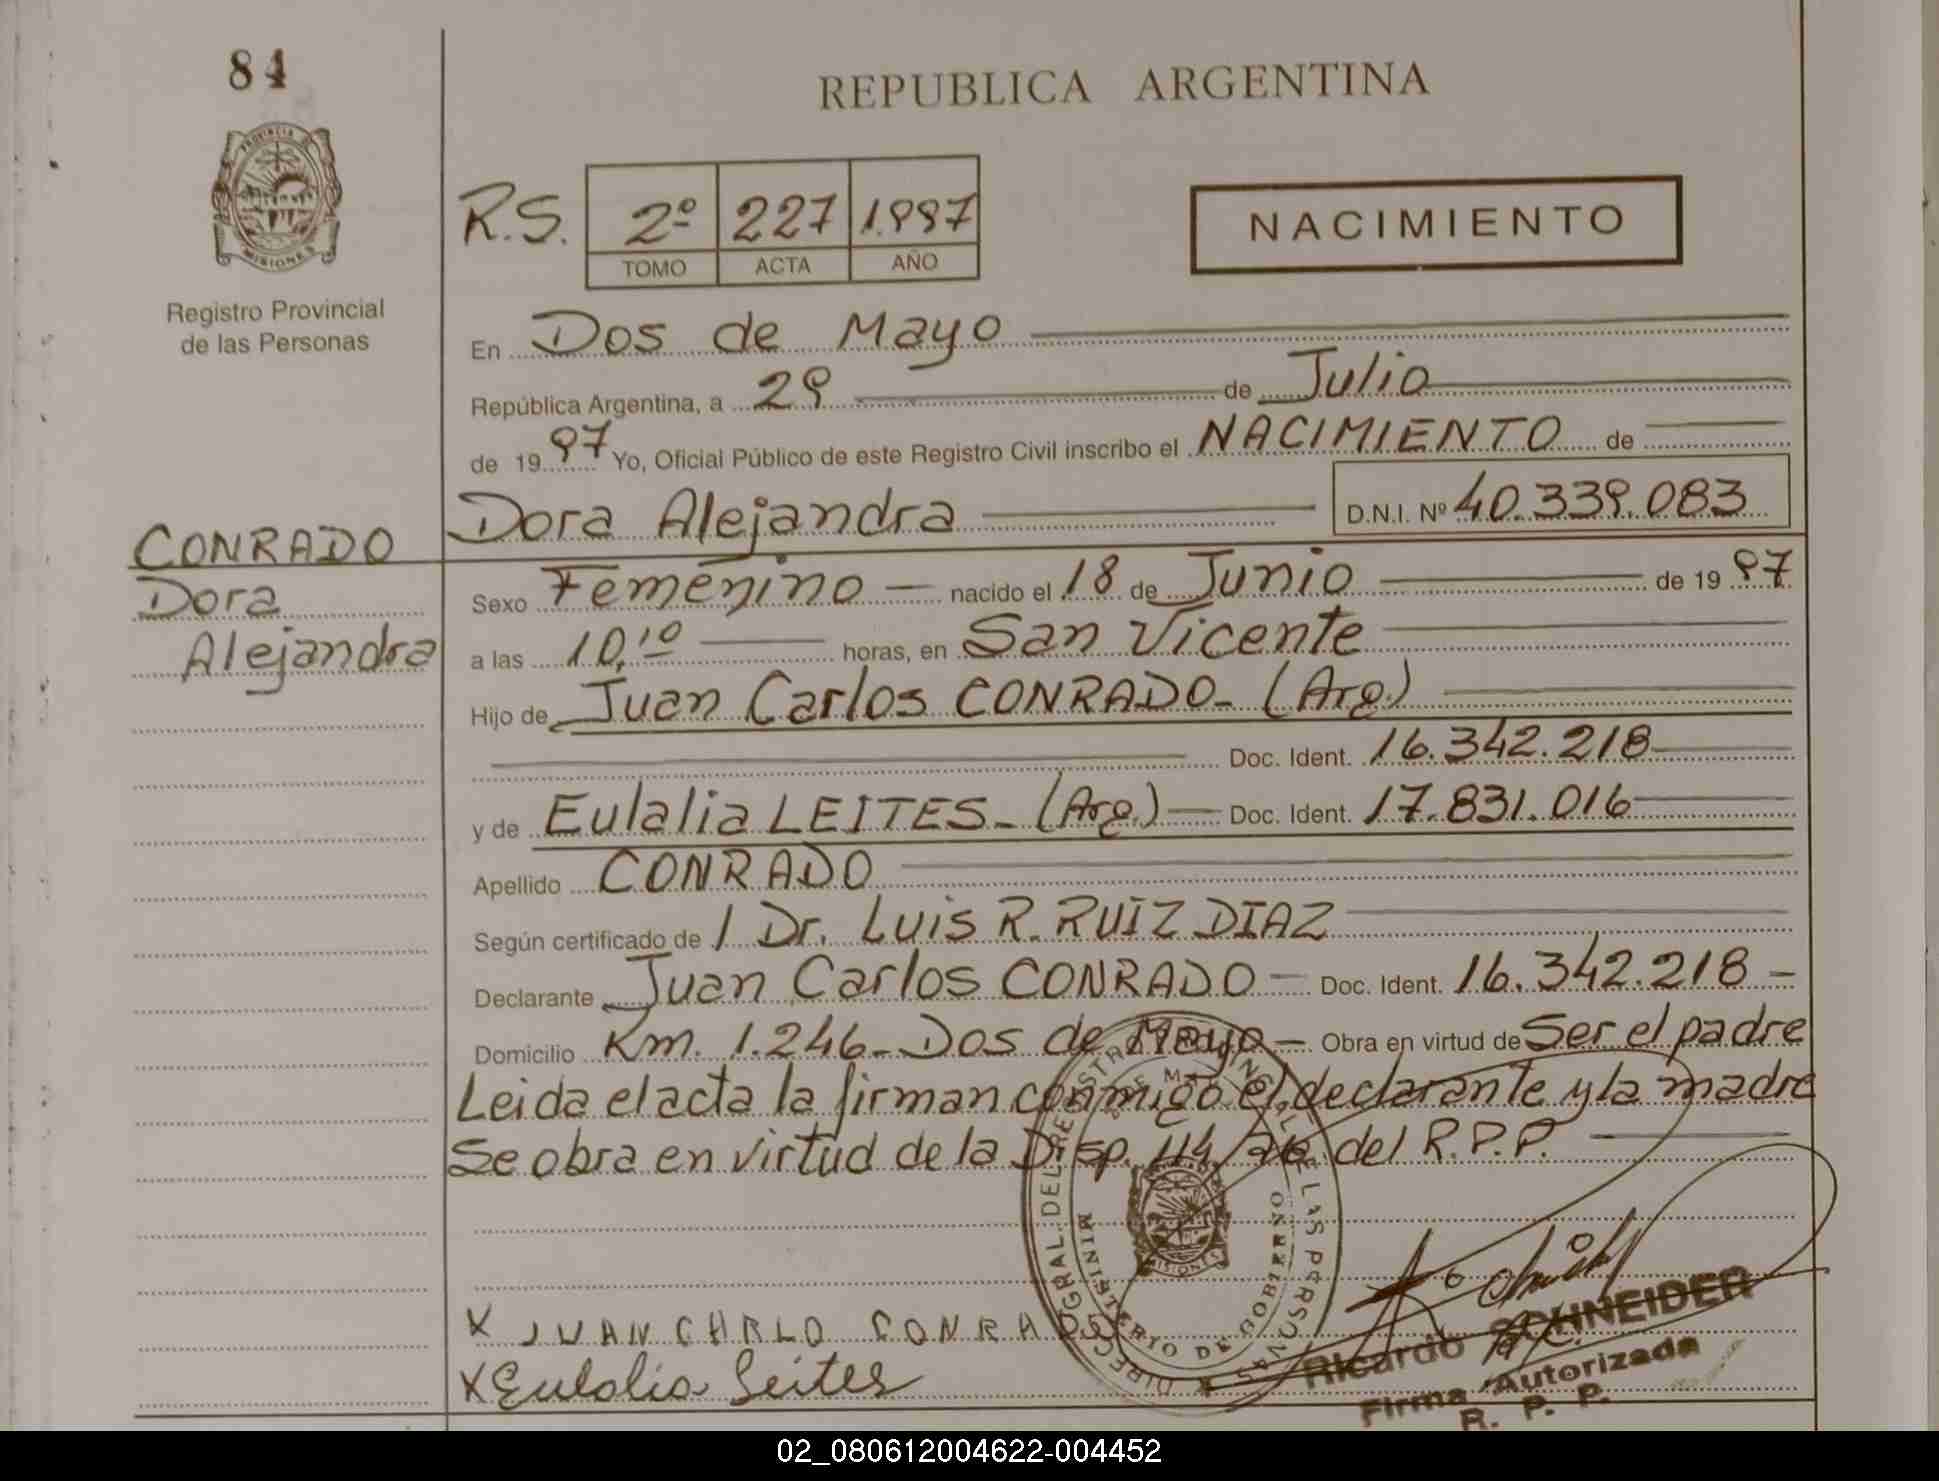 84
REPUBLICA ARGENTINA
PROVINCIA DE MISIONES
Registro Provincial
de las Personas
R.S. 2º 227 1.997
TOMO ACTA AÑO
NACIMIENTO
En Dos de Mayo
República Argentina, a 29 de Julio
de 1997 Yo, Oficial Público de este Registro Civil inscribo el NACIMIENTO de
Dora Alejandra D.N.I. Nº 40.339.083
CONRADO
Dora
Alejandra
Sexo Femenino nacido el 18 de Junio de 1997
a las 10,10 horas, en San Vicente
Hijo de Juan Carlos CONRADO- (Arg.)
Doc. Ident. 16.342.218
y de Eulalia LEITES- (Arg.) Doc. Ident. 17.831.016
Apellido CONRADO
Según certificado de / Dr. Luis R. RUIZ DIAZ
Declarante Juan Carlos CONRADO - Doc. Ident. 16.342.218 -
Domicilio Km. 1.246- Dos de Mayo - Obra en virtud de Ser el padre
Leida el acta la firman conmigo el declarante y la madre
Se obra en virtud de la Disp. 114/ del R.P.P.
X JUAN CARLO CONRADO
X Eulalia Leites
MINISTERIO DE GOBIERNO
MISIONES
Ricardo SCHNEIDER
Firma Autorizada
R. P. P.
02_080612004622-004452